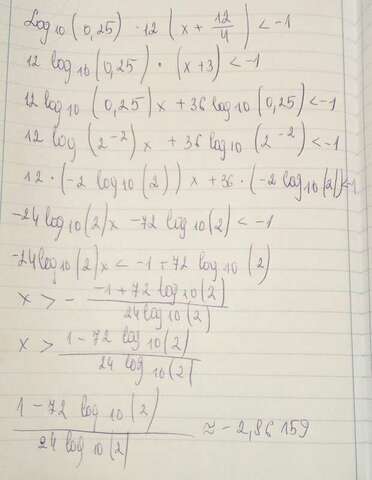 Log10(0,25) · 12 (x + 12/4) < -1
12 log10(0,25) · (x+3) < -1
12 log10 (0,25) x + 36 log10 (0,25) < -1
12 log (2^-2) x + 36 log10 (2^-2) < -1
12 · (-2 log10 (2)) x + 36 · (-2 log10 (2) < -1
-24 log10(2)x - 72 log10(2) < -1
-24 log10(2)x < -1 + 72 log10 (2)
x > - -1 + 72 log10(2) / 24 log10(2)
x > 1 - 72 log10(2) / 24 log10(2)
1 - 72 log10(2) / 24 log10(2) ≈ -2,86159